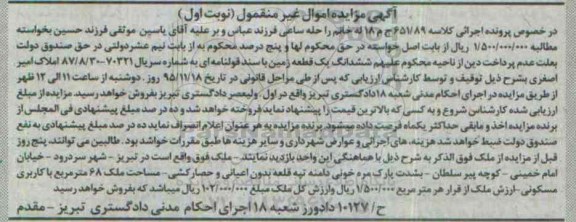 آگهی مزایده اموال غیر منقول (نوبت اول)
در خصوص پرونده اجرائی کلاسه ۶۵۱/۸۹ ج م ۱۸ له خانم راحله ساعی فرزند عباس و بر علیه آقای یاسین موثقی فرزند حسین بخواسته
مطالبه ۱/۵۰۰/۰۰۰/۰۰۰ ریال از بابت اصل خواسته در حق محکوم لها و پنج درصد محکوم به از بابت نیم عشر دولتی در حق صندوق دولت
بعلت عدم پرداخت دین از ناحیه محکوم علیهم ششدانگ یک قطعه زمین با سند قولنامه ای به شماره سریال ۷۰۳۳۱-۸۷/۸/۳۰ املاک امیر
اصغری بشرح ذیل توقیف و توسط کارشناس ارزیابی که پس از طی مراحل قانونی در تاریخ ۹۵/۱۱/۱۸ روز دوشنبه از ساعت ۱۱ الی ۱۲ ظهر
از طریق مزایده در اجرای احکام مدنی شعبه ۱۸ دادگستری تبریز واقع در اول ولیعصر دادگستری تبریز بفروش خواهد رسید. مزایده از مبلغ
ارزیابی شده کارشناس شروع و به کسی که بالاترین قیمت را پیشنهاد نماید فروخته خواهد شد و ده در صد مبلغ پیشنهادی فی المجلس از
برنده مزایده اخذ و مابقی حداکثر یکماه فرصت داده میشود برنده مزایده به هر عنوان اعلام انصراف نماید ده در صد مبلغ پیشنهادی به نفع
صندوق دولت ضبط خواهد شد هزینه های اجرائی و عوارض شهرداری و سایر هزینه ها طبق مقررات خواهد بود. طالبین می توانند پنج روز
قبل از مزایده از ملک فوق الذکر به شرح ذیل با هماهنگی این واحد بازدید نمایند. ملک فوق واقع است در تبریز - شهر سردرود - خیابان
امام خمینی - کوچه پیر سلطان - پشت پارک مره خونی دامنه تپه قلعه بدون اعیانی و حصارکشی - مساحت ملک ۶۸ مترمربع با کاربری
مسکونی - ارزش ملک از قرار هر متر مربع ۱/۵۰۰/۰۰۰ ریال و ارزش کل ملک مبلغ ۱۰۲/۰۰۰/۰۰۰ ریال میباشد که بفروش خواهد رسید
ح/ ۱۰۱۲۷ دادورز شعبه ۱۸ اجرای احکام مدنی دادگستری تبریز - مقدم